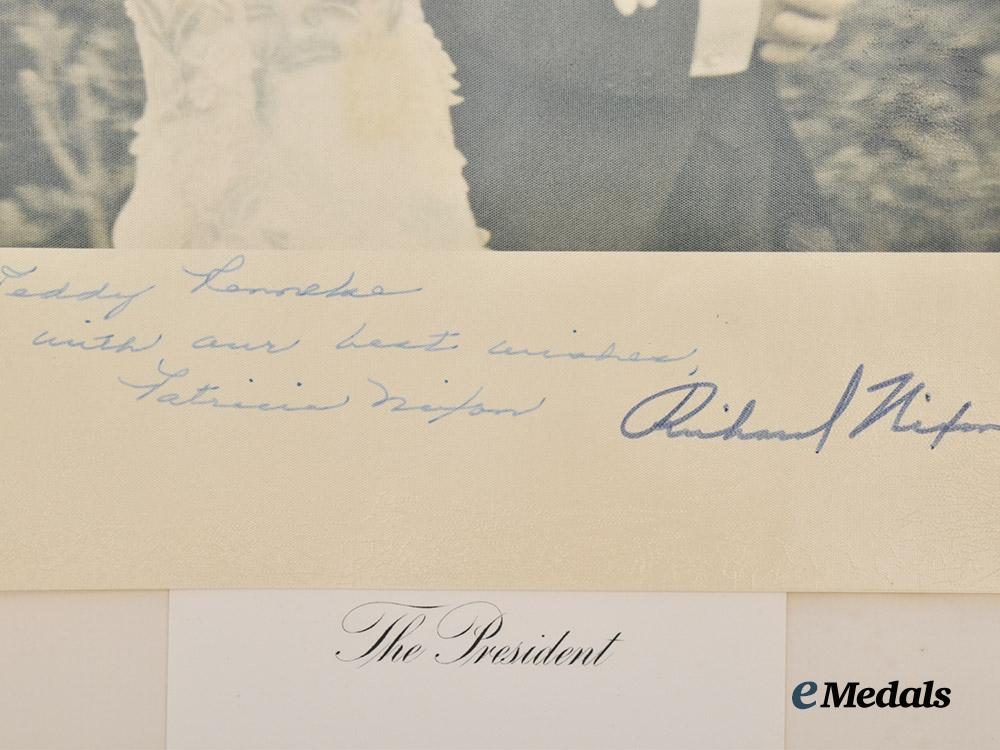 Teddy
with our best wishes,
Patricia Nixon
Richard Nixon
The President
eMedals